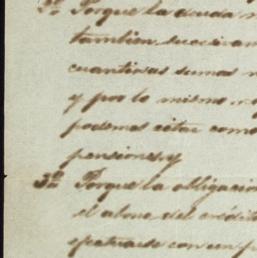 2º Porque la deuda
tambien, succesivam
cuantiosas sumas
y por lo mismo, no
podemos citar como
pensiones y
3º Porque la obligacion
el abono del crédito
efectuarse con un